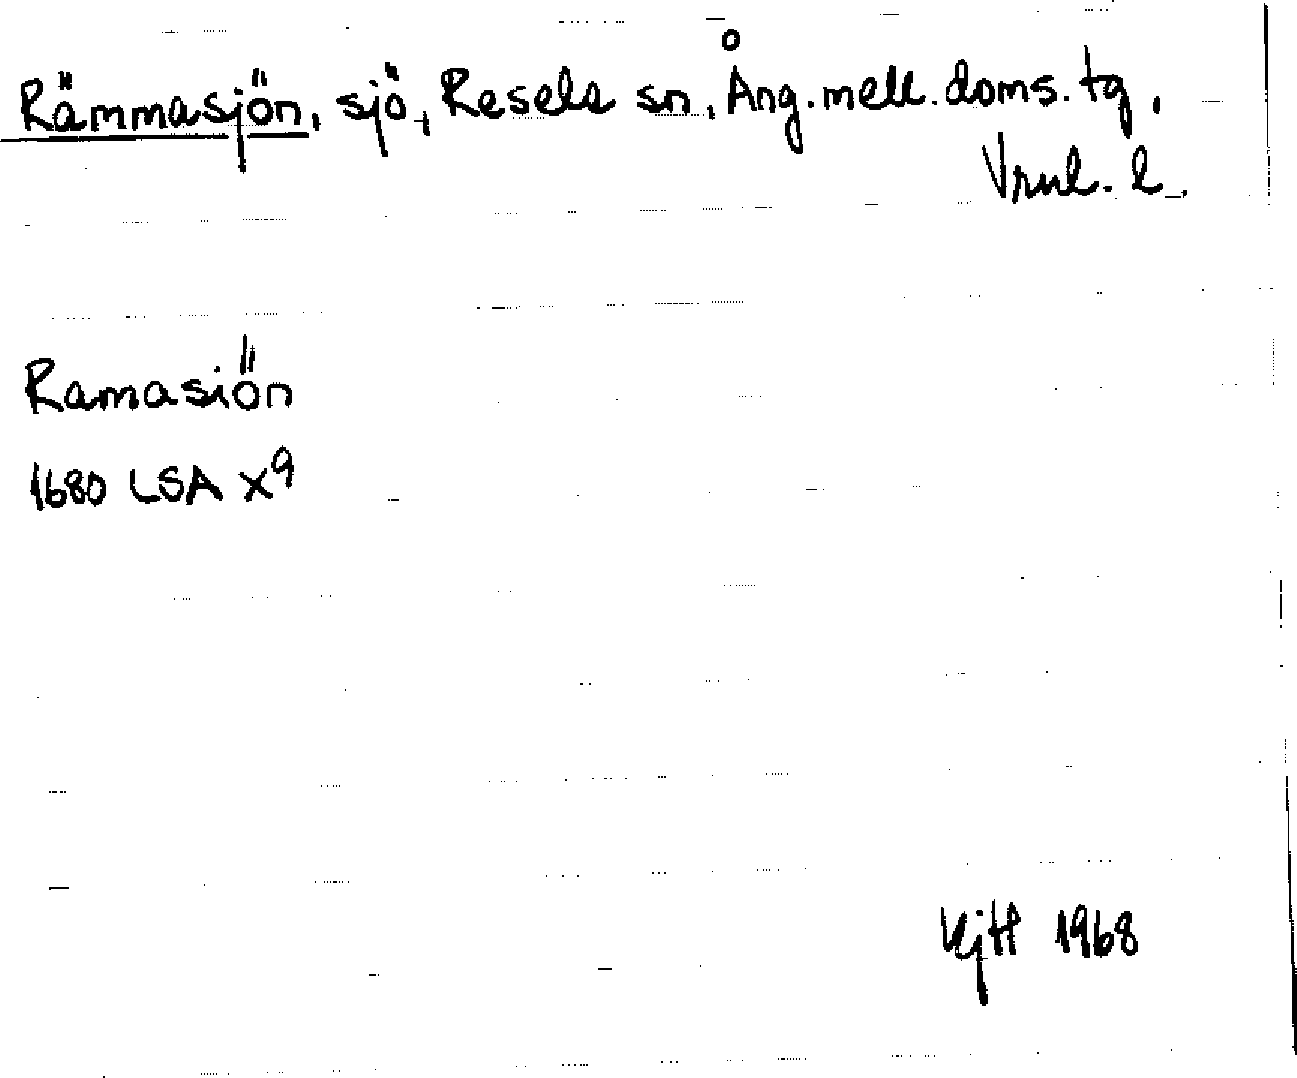 Rämmasjön, sjö, Resele sn, Ång. mell. doms. tg,
Vrnl. l.
Ramasiön
1680 LSA X9
KjtH 1968